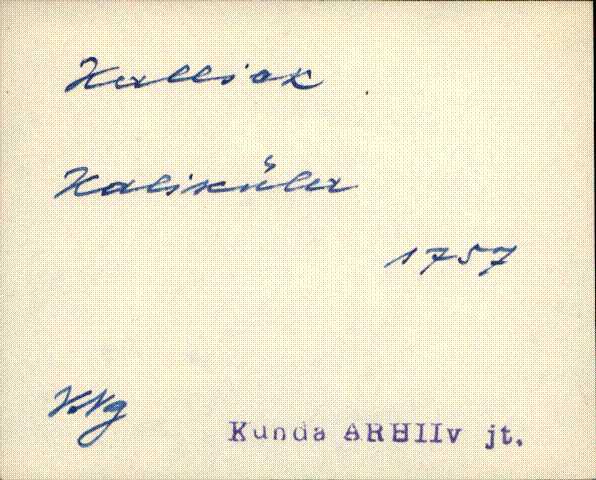 Kalliok.
Kaliküla
1757
V.Ng
Kunda ARHIIv jt.